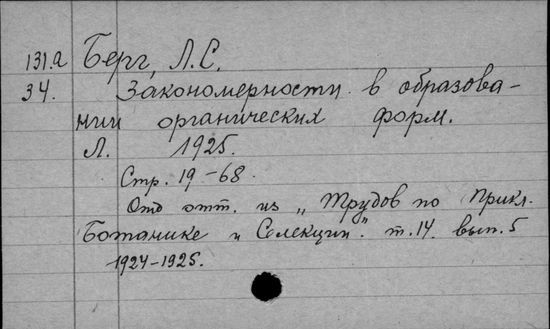 131.a Берг, Л.С.
34. Закономерности в образова-
нии органических форм.
Л. 1925.
Стр. 19-68.
Отд отт. из „Трудов по Прикл.
Ботанике и Селекции". т.14. вып. 5
1924-1925.